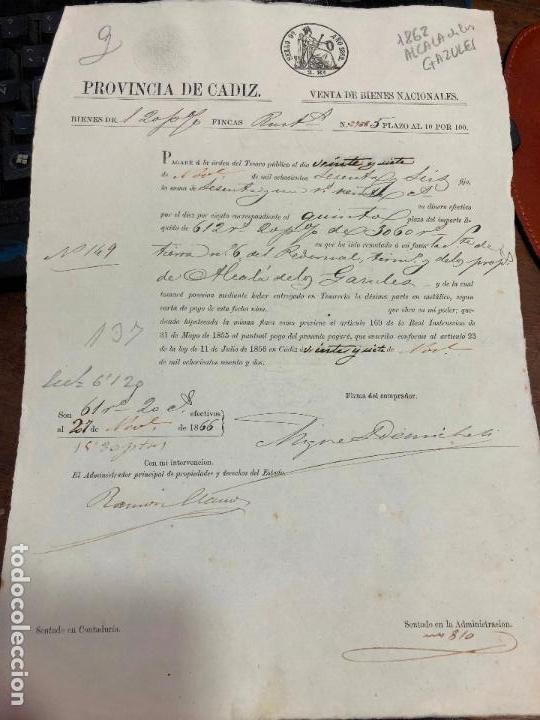 9
SELLO 9º AÑO 1862.
2. RS.
1862
ALCALA de los
GAZULES
PROVINCIA DE CADIZ.
VENTA DE BIENES NACIONALES.
BIENES DE 1 20 p% FINCAS Rust.ª N. 5 PLAZO AL 10 POR 100.
PAGARÉ á la órden del Tesoro público el dia veinte y siete
de Nov.e de mil ochocientos sesenta y seis fijo
la suma de sesenta y un r.s veinte c.s
en dinero efectivo
por el diez por ciento correspondiente al quinto plazo del importe lí-
quido de 612 r.s 20 p% de 3060 r.s
en que ha sido rematado á mi favor la Ste. de
Nº 149
tierra nº 6 del Redernal, term.º y de los prop.s
de Alcalá de los Gazules y de la cual
tomaré posesion mediante haber entregado en Tesorería la décima parte en metálico, segun
carta de pago de esta fecha núm. que obra en mi poder; que-
dando hipotecada la misma finca como previene el artículo 169 de la Real Instruccion de
31 de Mayo de 1855 al puntual pago del presente pagaré, que suscribo conforme al artículo 23
de la ley de 11 de Julio de 1856 en Cádiz veinte y siete de Nov.e
de mil ochocientos sesenta y dos.
137
6120
Firma del comprador.
Son 61 r.s 20 c.s efectivos
al 27 de Nov.e de 1866
Miguel
Con mi intervencion.
El Administrador principal de propiedades y derechos del Estado.
Ramón Llano
Sentado en Contaduría.
Sentado en la Administracion.
810
todocoleccion